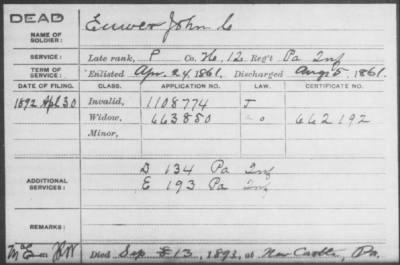 DEAD
NAME OF SOLDIER: Euwer John C
SERVICE: Late rank, P Co. H, 12 Reg't Pa Inf
TERM OF SERVICE: Enlisted Apr. 24, 1861, Discharged Aug 5, 1861.
DATE OF FILING. CLASS. APPLICATION NO. LAW. CERTIFICATE NO.
1892 Apl 30 Invalid, 1108774 J
Widow, 663850 " 662192
Minor,
ADDITIONAL SERVICES: D 134 Pa Inf
E 193 Pa Inf
REMARKS:
Died Sep 13, 1893, at New Castle, Pa.